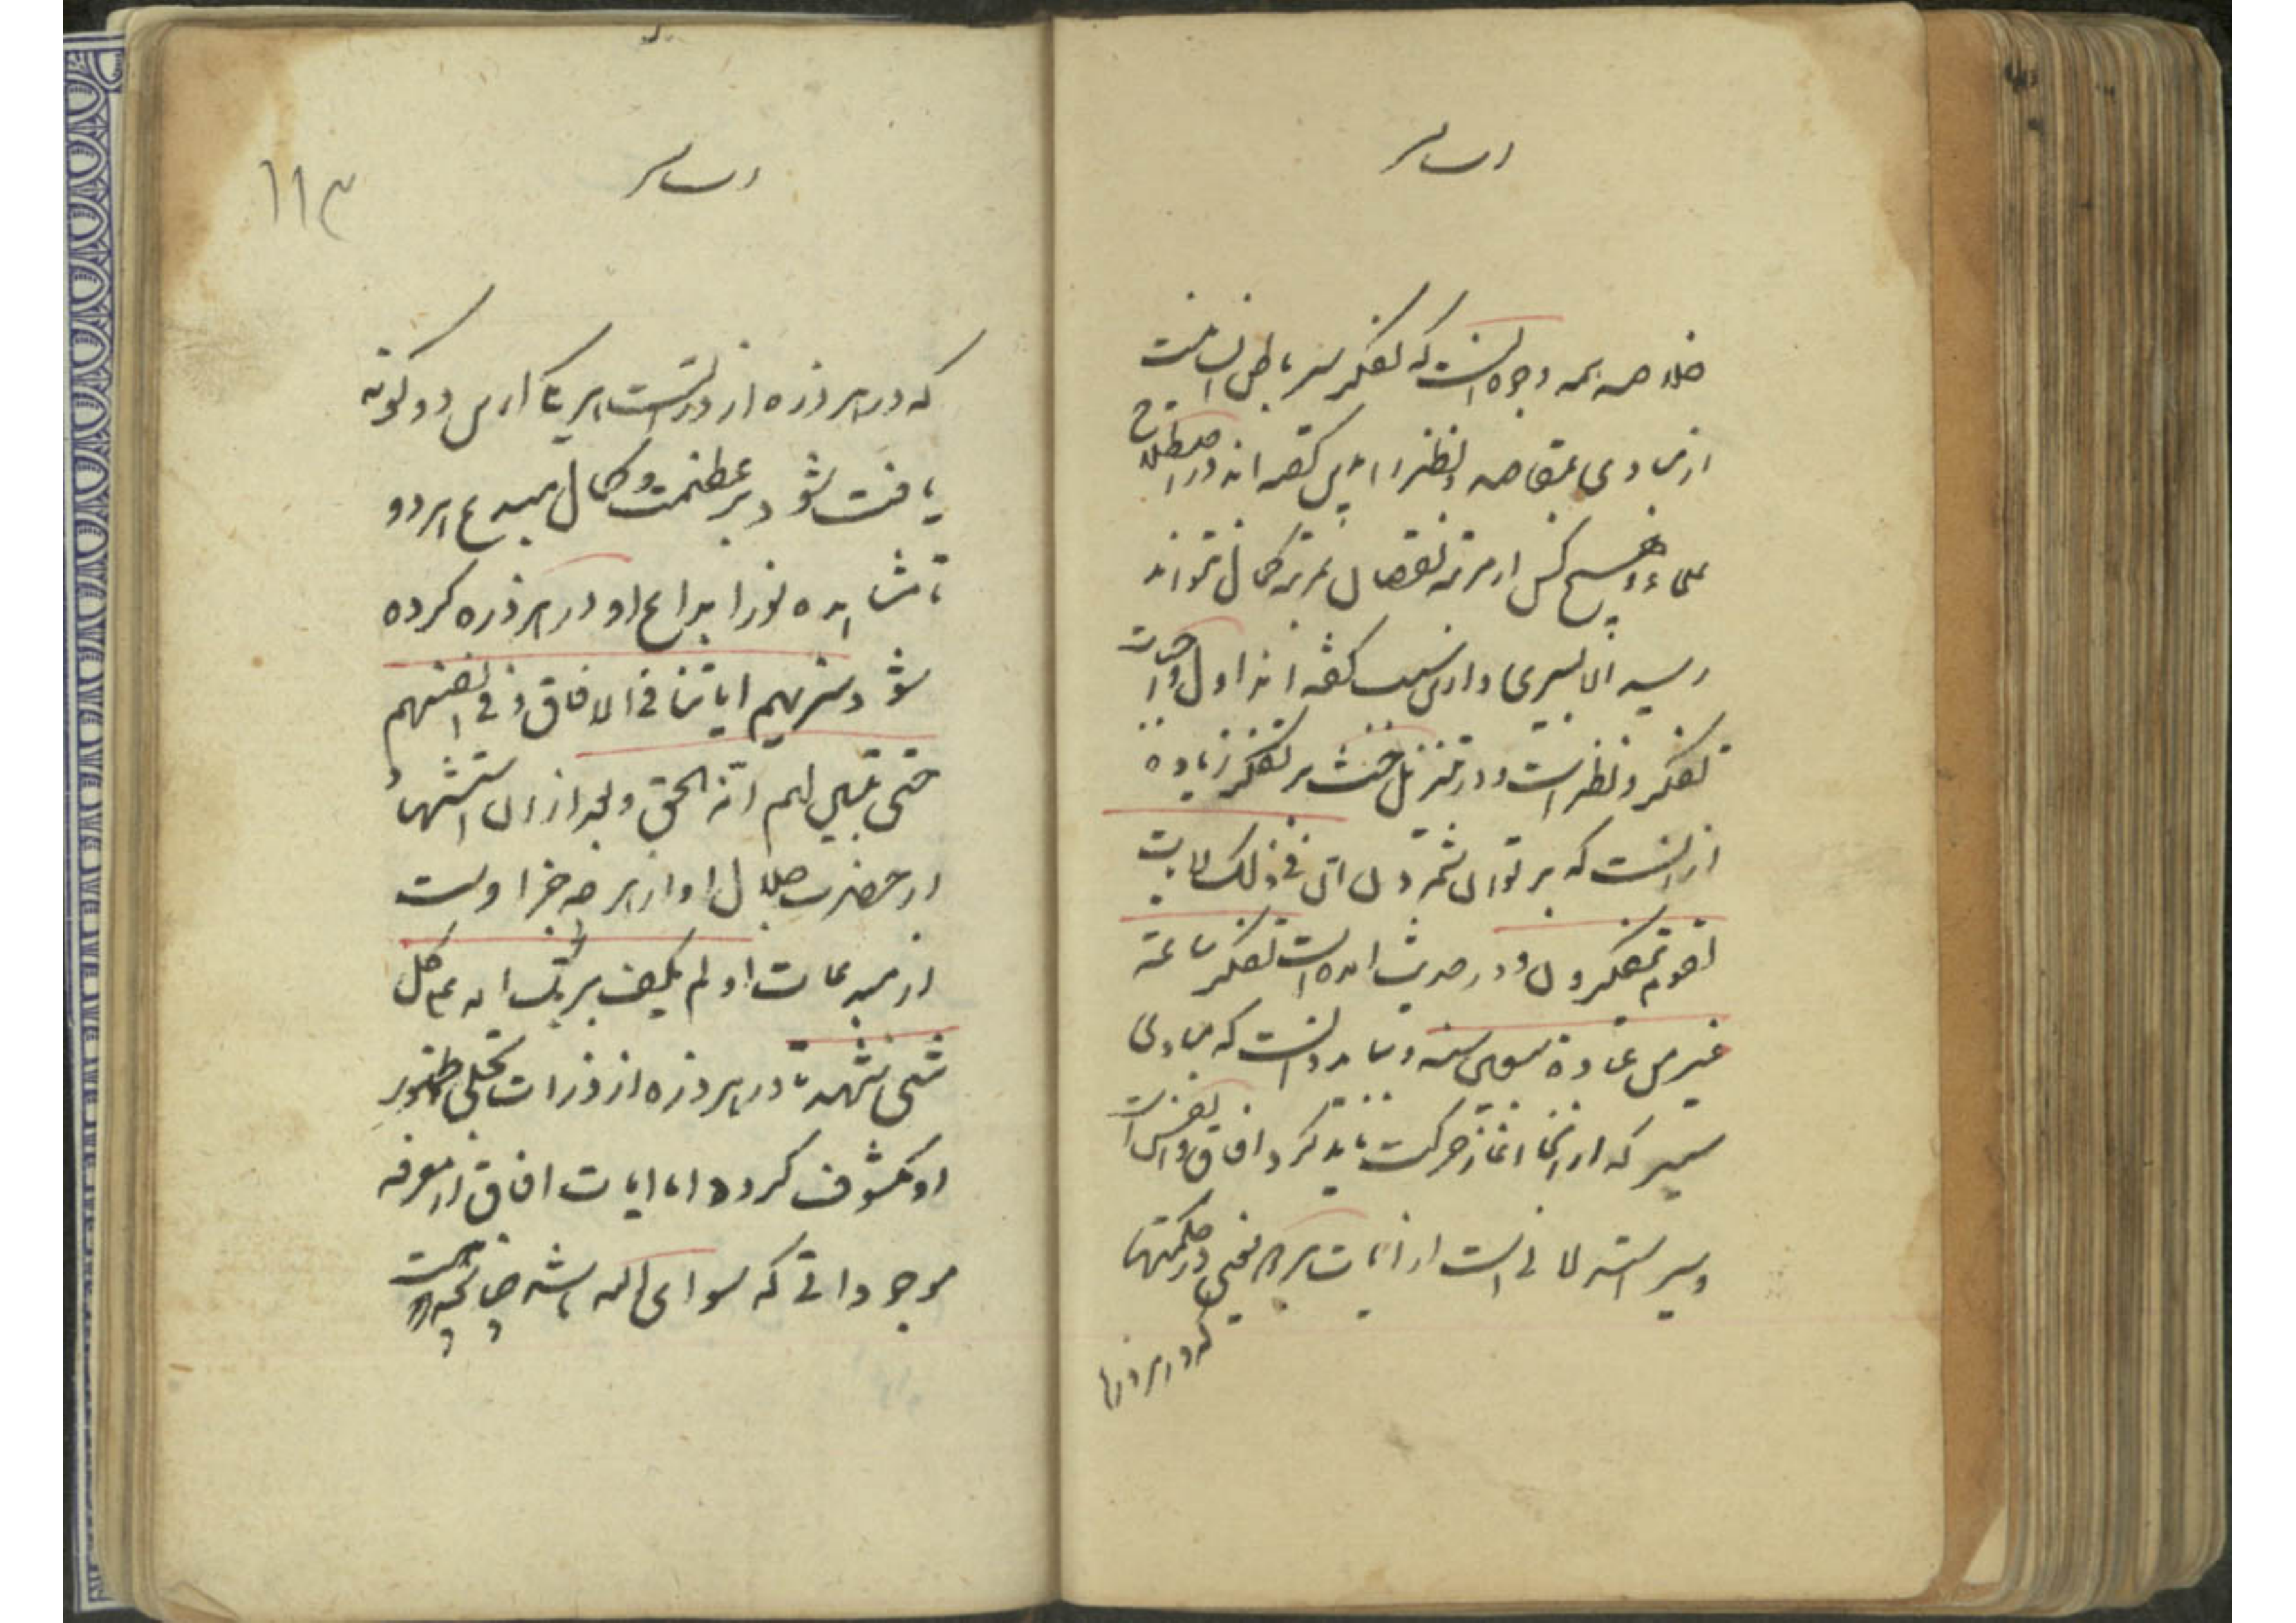 خلاصه همه وجوه انست که تفکر سیر باطن انسانیست
از مبادی بمقاصد و نظر را همین گفته اند در اصطلاح
علما و هیچ کس از مرتبه نقصان بمرتبه کمال نتواند
رسید الا بسیری و ازین سبب گفته اند اول واجبات
تفکر و نظر است و در تنزیل حث بر تفکر زیاده
از انست که بر توان شمرد ان فی ذلک لایات
لقوم یتفکرون و در حدیث امده است تفکر ساعة
خیر من عبادة سبعین سنه و بباید دانست که مبادی
سیر که از انجا اغاز حرکت باید کرد افاق و انفس است
و سیر استدلالی است از ایات هر دو یعنی از حکمتها
که در هر ذره
۱۱۳
که در هر ذره از ذرات هر یک ازین دو کون
یافت شود بر عظمت و کمال مبدع هر دو
تا مشاهده نور ابداع او در هر ذره کرده
شود سنریهم ایاتنا فی الافاق و فی انفسهم
حتی یتبین لهم انه الحق و بعد از ان استشهاد
از حضرت جلال او از هر چه جز اوست
از مبدعات او لم یکف بربک انه علی کل
شیء شهید تا در هر ذره از ذرات تجلی ظهور
او مکشوف کردد اما ایات افاق از معرفه
موجوداتی که سوای الله باشد چنانچه هست